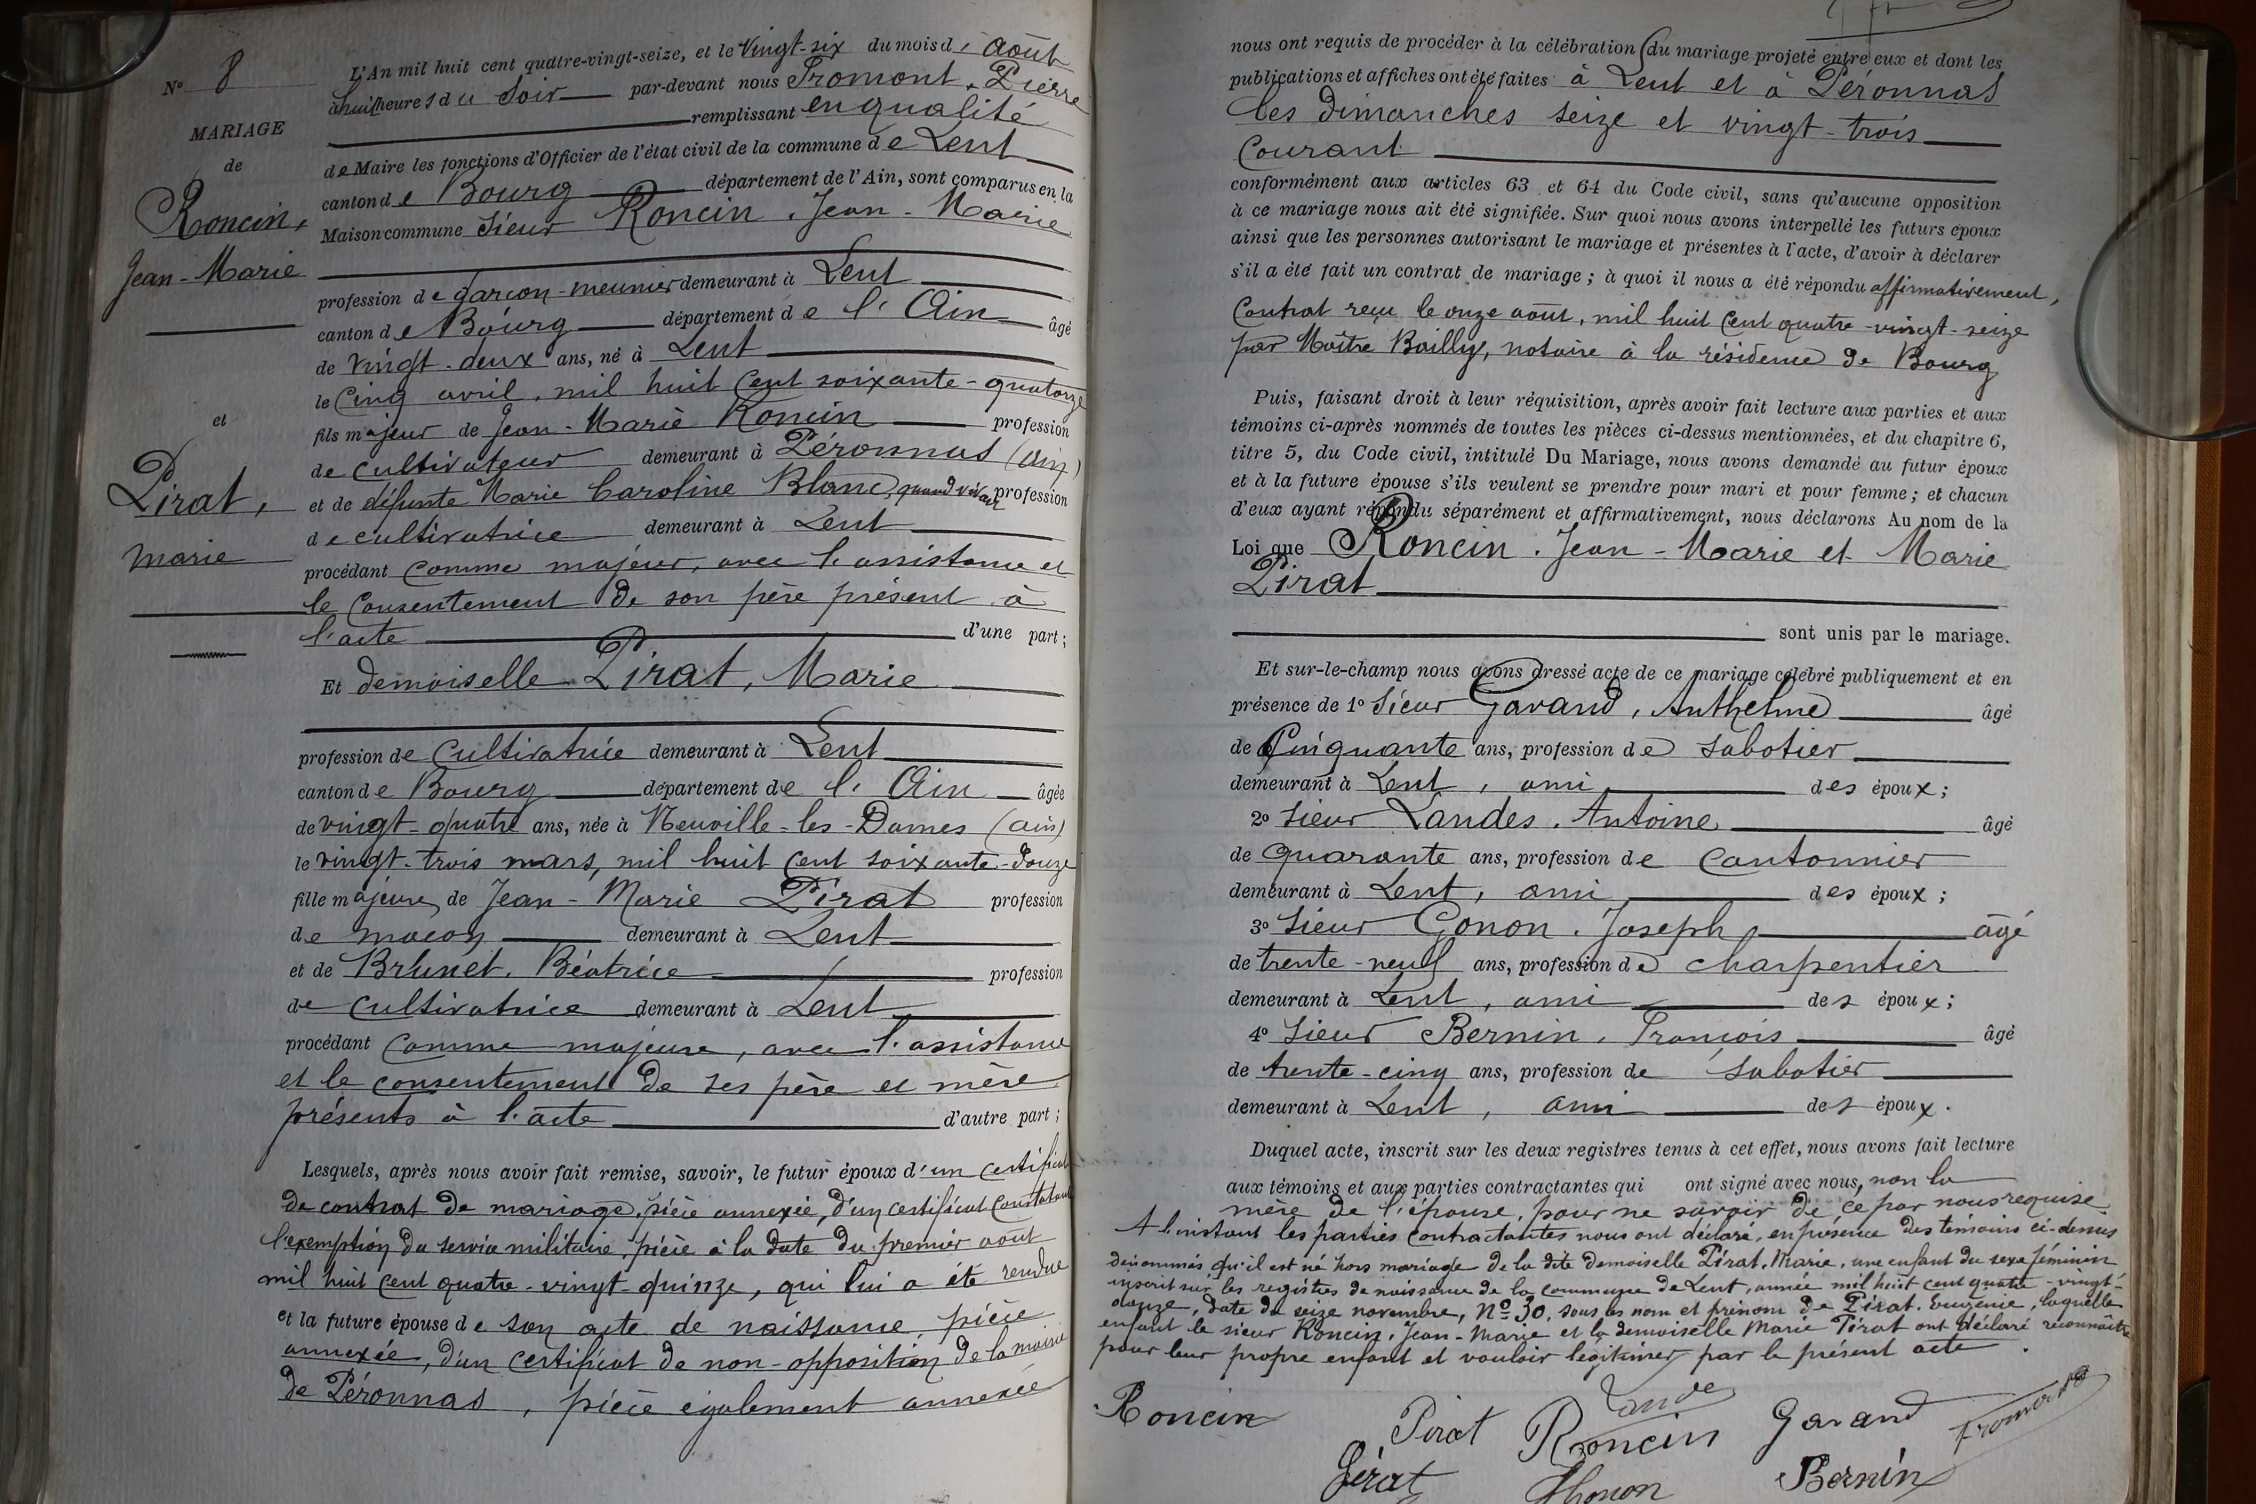 N° 8
MARIAGE
de
Roncin,
Jean-Marie
et
Pirat,
Marie
L'An mil huit cent quatre-vingt-seize, et le vingt-six du mois d'août
à huit heures du soir par-devant nous Fromont, Pierre
remplissant en qualité
de Maire les fonctions d'Officier de l'état civil de la commune de Lent
canton de Bourg département de l'Ain, sont comparus en la
Maison commune Sieur Roncin, Jean-Marie
profession de garçon-meunier demeurant à Lent
canton de Bourg département de l'Ain âgé
de vingt-deux ans, né à Lent
le cinq avril, mil huit cent soixante-quatorze
fils majeur de Jean-Marie Roncin profession
de cultivateur demeurant à Péronnas (Ain)
et de défunte Marie Caroline Blanc, quand vivait profession
de cultivatrice demeurant à Lent
procédant comme majeur, avec l'assistance et
le consentement de son père présent à
l'acte d'une part;
Et demoiselle Pirat, Marie
profession de cultivatrice demeurant à Lent
canton de Bourg département de l'Ain âgée
de vingt-quatre ans, née à Neuville-les-Dames (ain)
le vingt-trois mars, mil huit cent soixante-douze
fille majeure de Jean-Marie Pirat profession
de maçon demeurant à Lent
et de Brunet, Béatrice profession
de cultivatrice demeurant à Lent
procédant comme majeure, avec l'assistance
et le consentement de ses père et mère
présents à l'acte d'autre part;
Lesquels, après nous avoir fait remise, savoir, le futur époux d'un certificat
de contrat de mariage, pièce annexée, d'un certificat constatant
l'exemption du service militaire, pièce à la date du premier août
mil huit cent quatre-vingt-quinze, qui lui a été rendue
et la future épouse de son acte de naissance, pièce
annexée, d'un certificat de non-opposition de la mairie
de Péronnas, pièce également annexée
nous ont requis de procéder à la célébration du mariage projeté entre eux et dont les
publications et affiches ont été faites à Lent et à Péronnas
les dimanches seize et vingt-trois
courant
conformément aux articles 63 et 64 du Code civil, sans qu'aucune opposition
à ce mariage nous ait été signifiée. Sur quoi nous avons interpellé les futurs époux
ainsi que les personnes autorisant le mariage et présentes à l'acte, d'avoir à déclarer
s'il a été fait un contrat de mariage; à quoi il nous a été répondu affirmativement,
Contrat reçu le onze août, mil huit cent quatre-vingt-seize
par Maître Bailly, notaire à la résidence de Bourg
Puis, faisant droit à leur réquisition, après avoir fait lecture aux parties et aux
témoins ci-après nommés de toutes les pièces ci-dessus mentionnées, et du chapitre 6,
titre 5, du Code civil, intitulé Du Mariage, nous avons demandé au futur époux
et à la future épouse s'ils veulent se prendre pour mari et pour femme; et chacun
d'eux ayant répondu séparément et affirmativement, nous déclarons Au nom de la
Loi que Roncin, Jean-Marie et Marie
Pirat
sont unis par le mariage.
Et sur-le-champ nous avons dressé acte de ce mariage célébré publiquement et en
présence de 1° Sieur Gavand, Anthelme âgé
de cinquante ans, profession de sabotier
demeurant à Lent, ami des époux;
2° Sieur Landes, Antoine âgé
de quarante ans, profession de cantonnier
demeurant à Lent, ami des époux;
3° Sieur Gonon, Joseph âgé
de trente-neuf ans, profession de charpentier
demeurant à Lent, ami des époux;
4° Sieur Bernin, François âgé
de trente-cinq ans, profession de sabotier
demeurant à Lent, ami des époux.
Duquel acte, inscrit sur les deux registres tenus à cet effet, nous avons fait lecture
aux témoins et aux parties contractantes qui ont signé avec nous, non la
mère de l'épouse, pour ne savoir de ce par nous requise.
A l'instant les parties contractantes nous ont déclaré, en présence des témoins ci-dessus
dénommés qu'il est né hors mariage de la dite demoiselle Pirat, Marie, une enfant du sexe féminin
inscrit sur les registres de naissance de la commune de Lent, année mil huit cent quatre-vingt-
douze, date du seize novembre, N° 30, sous les nom et prénom de Pirat, Eugénie, laquelle
enfant le sieur Roncin, Jean-Marie et la demoiselle Marie Pirat ont déclaré reconnaître
pour leur propre enfant et vouloir légitimer par le présent acte.
Roncin Pirat Lande Roncin Gavand Fromont
Pérat Ghonon Bernin